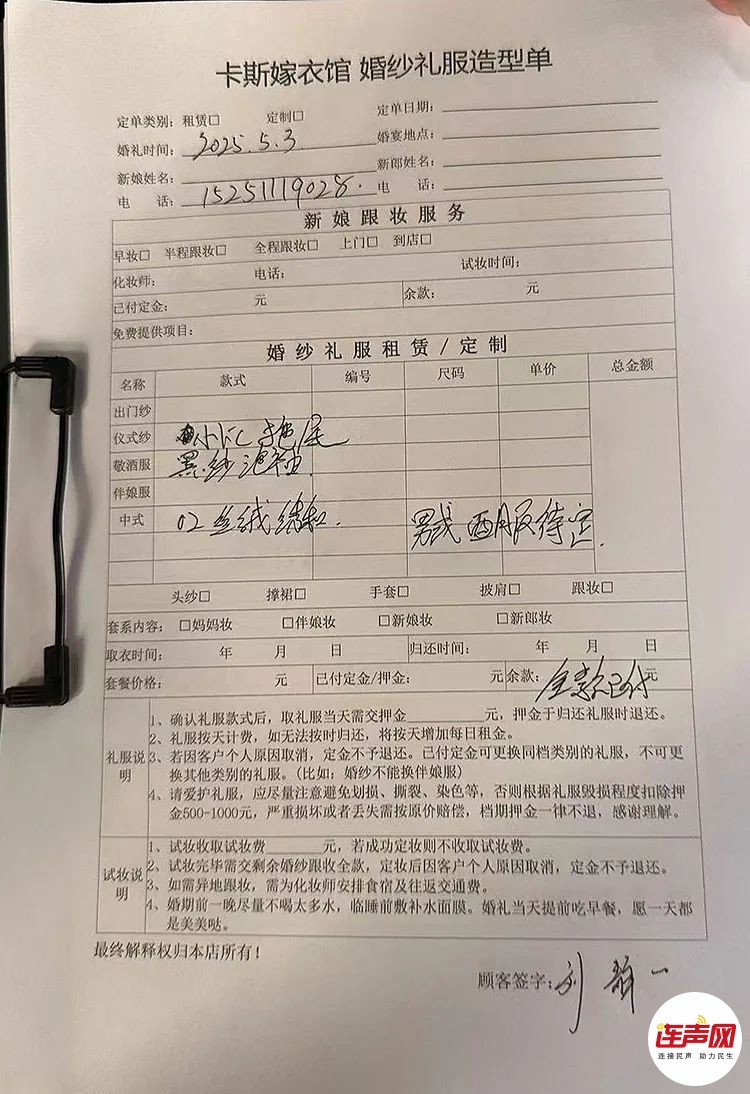 卡斯嫁衣馆 婚纱礼服造型单
定单类别：租赁□ 定制□ 定单日期：
婚礼时间：2025.5.3 婚宴地点：
新娘姓名： 新郎姓名：
电 话：15251119028. 电 话：
新娘跟妆服务
早妆□ 半程跟妆□ 全程跟妆□ 上门□ 到店□
化妆师： 电话： 试妆时间：
已付定金： 元 余款： 元
免费提供项目：
婚纱礼服租赁/定制
名称 款式 编号 尺码 单价 总金额
出门纱
仪式纱 拖尾
敬酒服 黑纱泡袖
伴娘服
中式 02丝绒 男式 西服待定.
头纱□ 撑裙□ 手套□ 披肩□ 跟妆□
套系内容：□妈妈妆 □伴娘妆 □新娘妆 □新郎妆
取衣时间： 年 月 日 归还时间： 年 月 日
套餐价格： 元 已付定金/押金： 元 余款：全款已付 元
礼服说明
1、确认礼服款式后，取礼服当天需交押金________元，押金于归还礼服时退还。
2、礼服按天计费，如无法按时归还，将按天增加每日租金。
3、若因客户个人原因取消，定金不予退还。已付定金可更换同档类别的礼服，不可更
换其他类别的礼服。(比如；婚纱不能换伴娘服)
4、请爱护礼服，应尽量注意避免划损、撕裂、染色等，否则根据礼服毁损程度扣除押
金500-1000元，严重损坏或者丢失需按原价赔偿，档期押金一律不退，感谢理解。
试妆说明
1、试妆收取试妆费________元，若成功定妆则不收取试妆费。
2、试妆完毕需交剩余婚纱跟收全款，定妆后因客户个人原因取消，定金不予退还。
3、如需异地跟妆，需为化妆师安排食宿及往返交通费。
4、婚期前一晚尽量不喝太多水，临睡前敷补水面膜。婚礼当天提前吃早餐，愿一天都
是美美哒。
最终解释权归本店所有！
顾客签字：刘
连声网
连接民声 助力民生